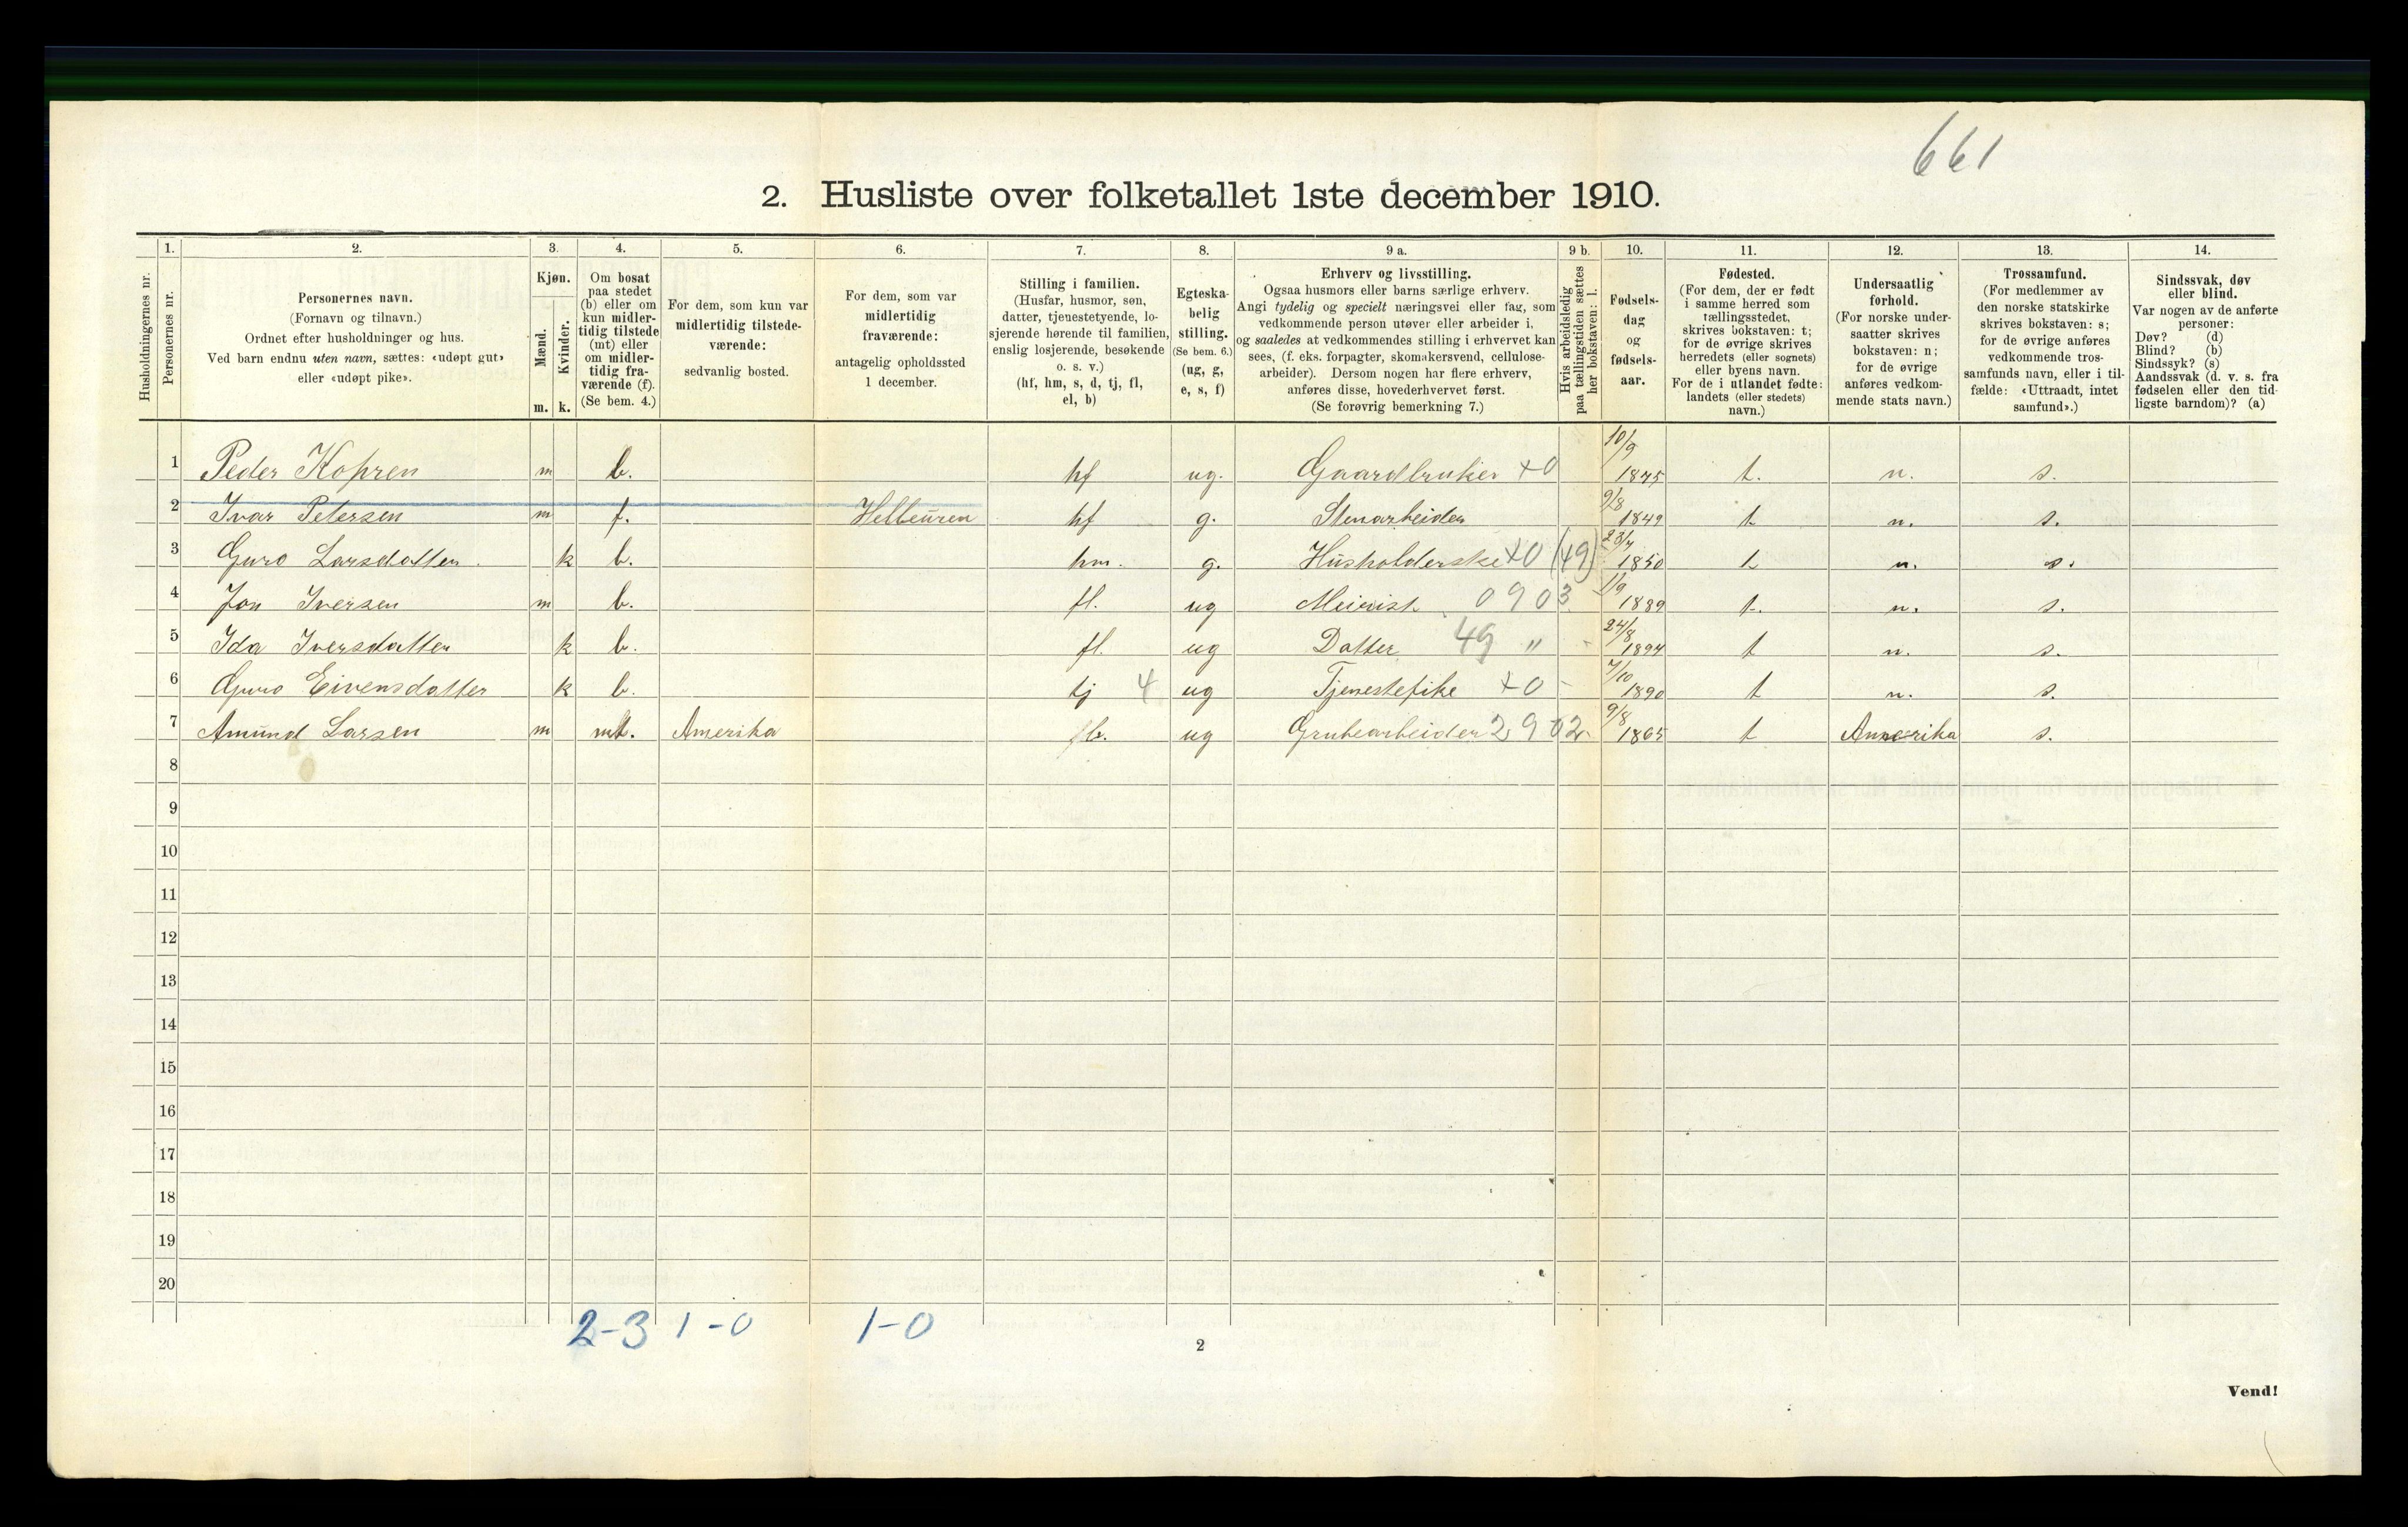 661
2. Husliste over folketallet 1ste december 1910.
Husholdningernes nr.
1.
Personernes nr.
2.
Personernes navn.
(Fornavn og tilnavn.)
Ordnet efter husholdninger og hus.
Ved barn endnu uten navn, sættes: «udøpt gut»
eller «udøpt pike».
3.
Kjøn.
Mænd.
m.
Kvinder.
k.
4.
Om bosat
paa stedet
(b) eller om
kun midler-
tidig tilstede
(mt) eller
om midler-
tidig fra-
værende (f).
(Se bem. 4.)
5.
For dem, som kun var
midlertidig tilstede-
værende:
sedvanlig bosted.
6.
For dem, som var
midlertidig
fraværende:
antagelig opholdssted
1 december.
7.
Stilling i familien.
(Husfar, husmor, søn,
datter, tjenestetyende, lo-
sjerende hørende til familien,
enslig losjerende, besøkende
o. s. v.)
(hf, hm, s, d, tj, fl,
el, b)
8.
Egteska-
belig
stilling.
(Se bem. 6.)
(ug, g,
e, s, f)
9 a.
Erhverv og livsstilling.
Ogsaa husmors eller barns særlige erhverv.
Angi tydelig og specielt næringsvei eller fag, som
vedkommende person utøver eller arbeider i,
og saaledes at vedkommendes stilling i erhvervet kan
sees, (f. eks. forpagter, skomakersvend, cellulose-
arbeider). Dersom nogen har flere erhverv,
anføres disse, hovederhvervet først.
(Se forøvrig bemerkning 7.)
9 b.
Hvis arbeidsledig
paa tællingstiden sættes
her bokstaven: l.
10.
Fødsels-
dag
og
fødsels-
aar.
11.
Fødested.
(For dem, der er født
i samme herred som
tællingsstedet,
skrives bokstaven: t;
for de øvrige skrives
herredets (eller sognets)
eller byens navn.
For de i utlandet fødte:
landets (eller stedets)
navn.)
12.
Undersaatlig
forhold.
(For norske under-
saatter skrives
bokstaven: n;
for de øvrige
anføres vedkom-
mende stats navn.)
13.
Trossamfund.
(For medlemmer av
den norske statskirke
skrives bokstaven: s;
for de øvrige anføres
vedkommende tros-
samfunds navn, eller i til-
fælde: «Uttraadt, intet
samfund».)
14.
Sindssvak, døv
eller blind.
Var nogen av de anførte
personer:
Døv? (d)
Blind? (b)
Sindssyk? (s)
Aandssvak (d. v. s. fra
fødselen eller den tid-
ligste barndom)? (a)
1 Peder Kopren m b. hf ug. Gaardbruker +0 10/9 1875 t. n. s.
2 Ivar Petersen m f. Helleuren hf g. Stenarbeider 9/8 1849 t n. s.
3 Guro Larsdatter. k b. hm. g. Husholderske +0 (49) 23/7 1850 t n. s.
4 Jon Iversen m b. fl. ug Meierist 0903 1/9 1889 t. n. s.
5 Ida Iversdatter k b. fl. ug Datter 49 " - 24/8 1894 t n. s.
6 Guro Eivensdatter k b. tj 4 ug Tjenestepike +0 - 7/10 1890 t n. s.
7 Amund Larsen m mt. Amerika b. ug Grubearbeider 2902 9/8 1865 t Amerika s.
8
9
10
11
12
13
14
15
16
17
18
19
20
2-3 1-0 1-0
2
Vend!